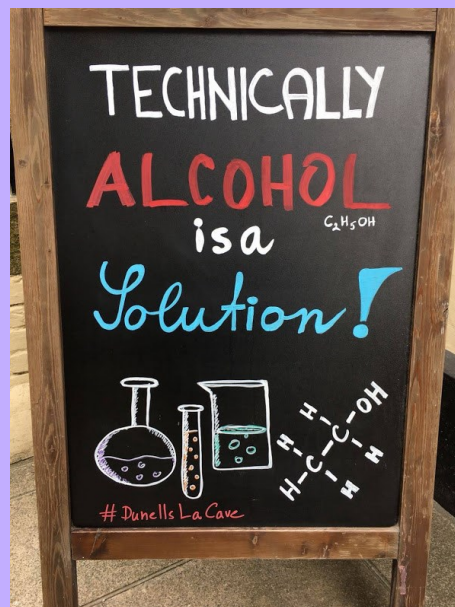 TECHNICALLY
ALCOHOL
C₂H₅OH
is a
Solution!
H H
H-C-C-OH
H H
# Dunells La Cave